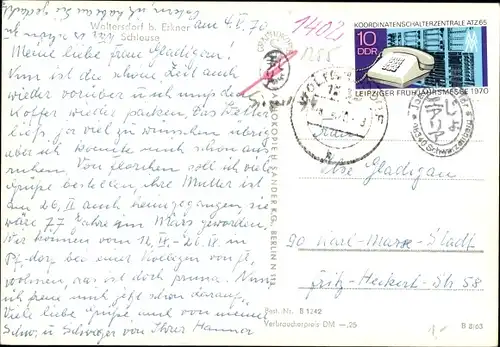 Woltersdorf b. Erkner
Schleuse
am 4.V.70
Meine liebe Frau Gladigau!
Nun ist die schöne Zeit auch
wieder vorüber und ich muß den
Koffer wieder packen. Das Wetter
ließ ja viel zu wünschen übrig
aber ich konnte mich schön aus-
ruhen. Von soll ich viele
Grüße bestellen, ihre Mutter ist
am 26. II auch heimgegangen sie
wäre 77 Jahre im März geworden.
Wir können vom 12. IX - 26. IX in
dorf bei einer Kollegin von
wohnen, was ist doch prima. Nun
ich freue mich jetzt schon darauf.
Viele liebe Grüße auch von meiner
Schw. u. Schwager von Ihrer Hanna
1402
1255
KOORDINATENSCHALTERZENTRALE ATZ 65
10
DDR
LEIPZIGER FRÜHJAHRSMESSE 1970
WOLTERSDORF
FOTOKOPIE H. SANDER KG. BERLIN N 113
Else Gladigau
90 Karl-Marx-Stadt
Fritz-Heckert-Str 58
Best. Nr. B 1242
Verbraucherpreis DM —,25
B 8/63